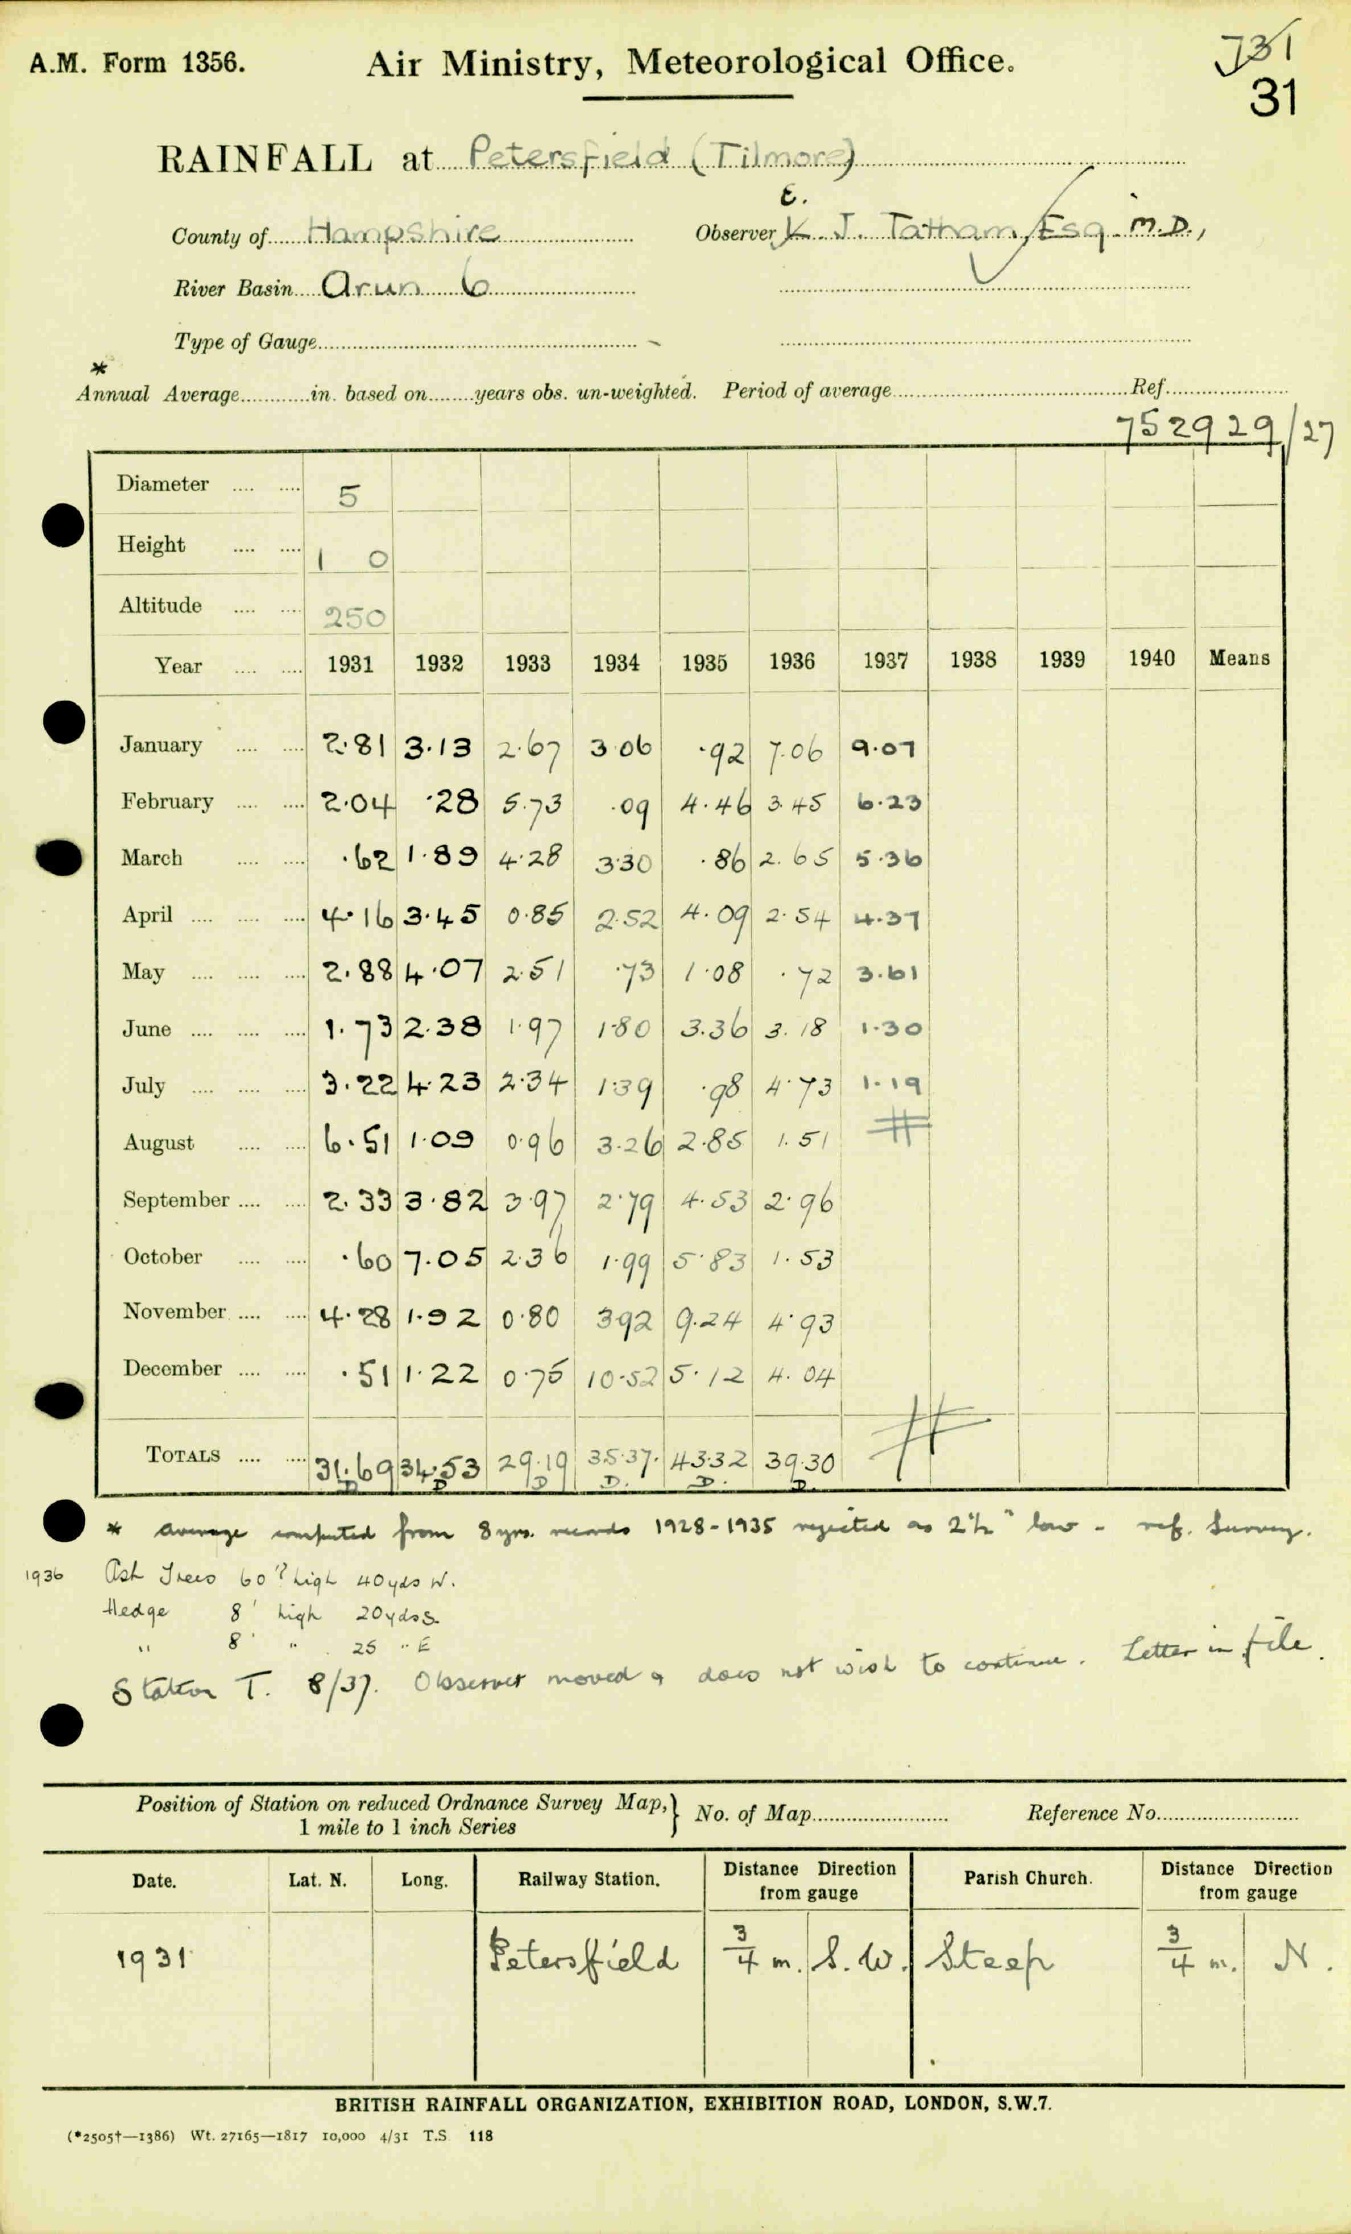 731
A.M. Form 1356. Air Ministry, Meteorological Office.
31
RAINFALL at Petersfield (Tilmore)
E.
County of Hampshire Observer K. J. Tatham, Esq. M.D.,
River Basin Arun 6
Type of Gauge
*
Annual Average in. based on years obs. un-weighted. Period of average Ref.
752929/27
Diameter 5
Height 1 0
Altitude 250
Year 1931 1932 1933 1934 1935 1936 1937 1938 1939 1940 Means
January 2.81 3.13 2.67 3.06 .92 7.06 9.07
February 2.04 .28 5.73 .09 4.46 3.45 6.23
March .62 1.89 4.28 3.30 .86 2.65 5.36
April 4.16 3.45 0.85 2.52 4.09 2.54 4.37
May 2.88 4.07 2.51 .73 1.08 .72 3.61
June 1.73 2.38 1.97 1.80 3.36 3.18 1.30
July 3.22 4.23 2.34 1.39 .98 4.73 1.19
August 6.51 1.09 0.96 3.26 2.85 1.51
September 2.33 3.82 3.97 2.79 4.53 2.96
October .60 7.05 2.36 1.99 5.83 1.53
November 4.28 1.92 0.80 3.92 9.24 4.93
December .51 1.22 0.75 10.52 5.12 4.04
TOTALS 31.69 34.53 29.19 35.37 43.32 39.30
D D D D. D. D.
* average computed from 8 yrs. records 1928-1935 rejected as 2½" low - ref. Survey.
1936 Ash Trees 60' high 40 yds W.
Hedge 8' high 20 yds S.
" 8' " 25 " E
Station T. 8/37. Observer moved & does not wish to continue. Letter in file.
Position of Station on reduced Ordnance Survey Map,} No. of Map Reference No.
1 mile to 1 inch Series
Date. Lat. N. Long. Railway Station. Distance Direction from gauge Parish Church. Distance Direction from gauge
1931 Petersfield ¾ m. S.W. Steep ¾ m. N.
BRITISH RAINFALL ORGANIZATION, EXHIBITION ROAD, LONDON, S.W.7.
(*2505†—1386) Wt. 27165—1817 10,000 4/31 T.S. 118